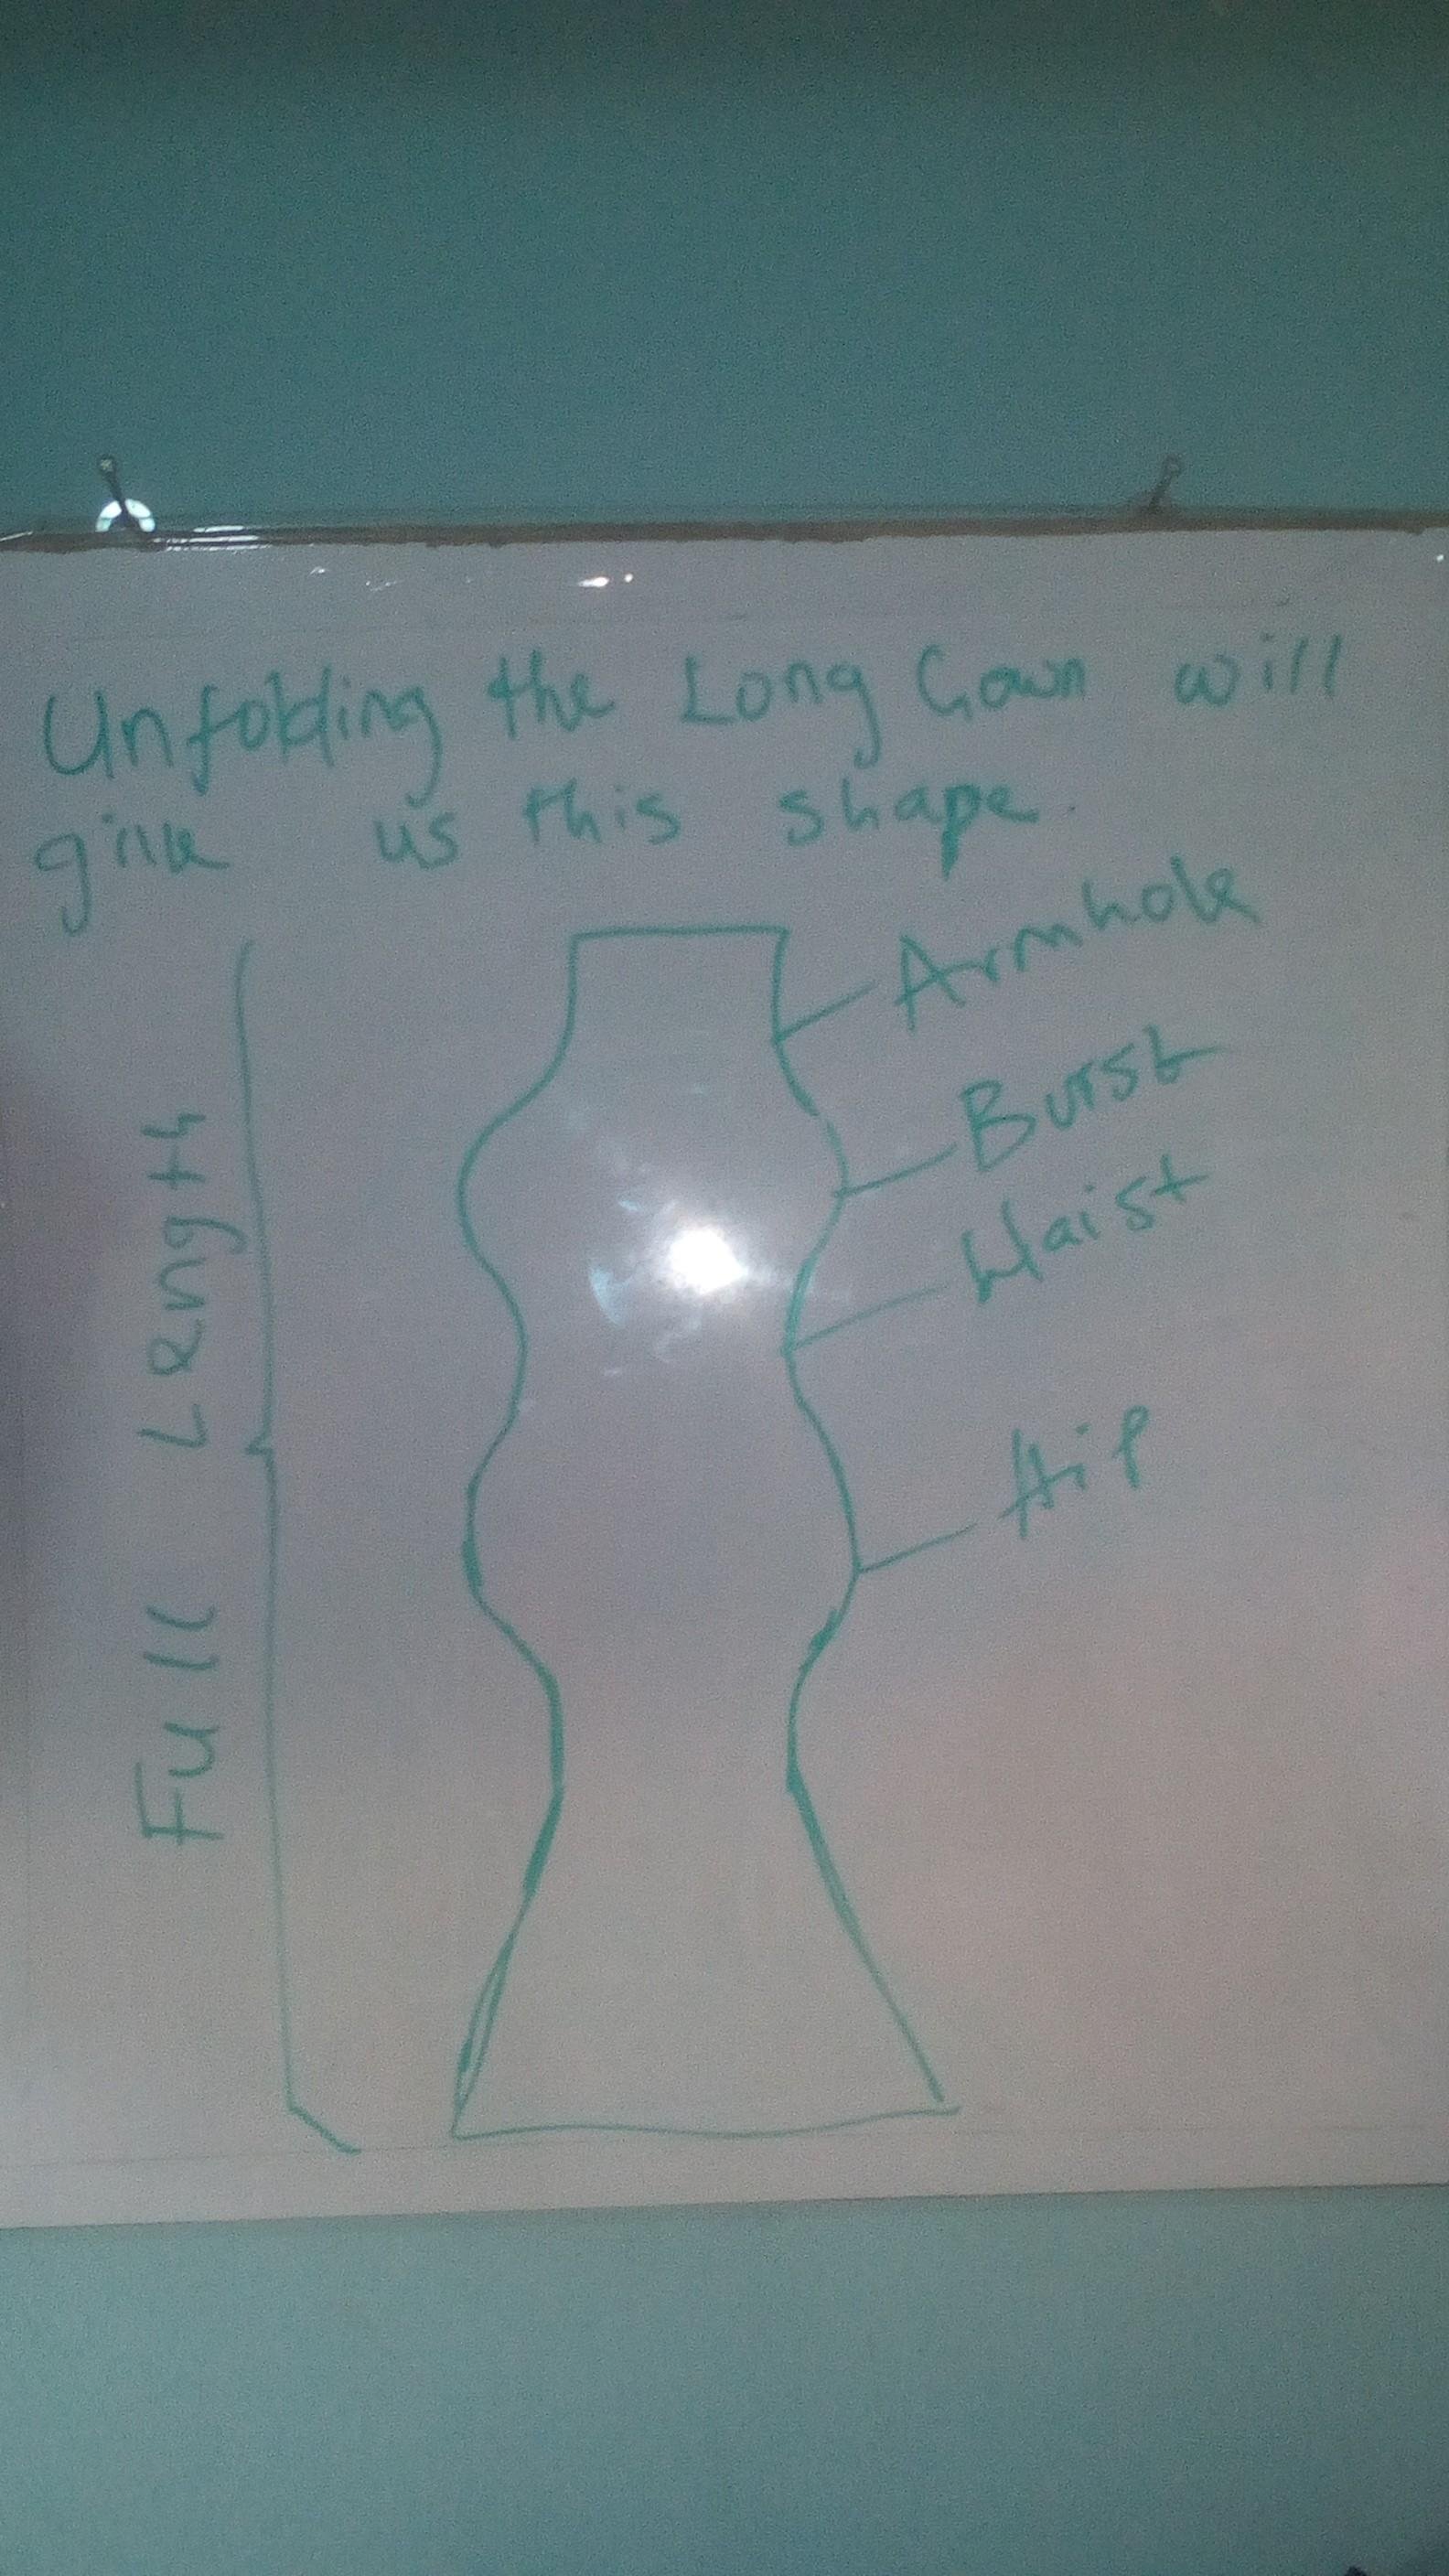 Unfolding the Long Gown will
give us this shape.
Armhole
Burst
Waist
Hip
Full Length